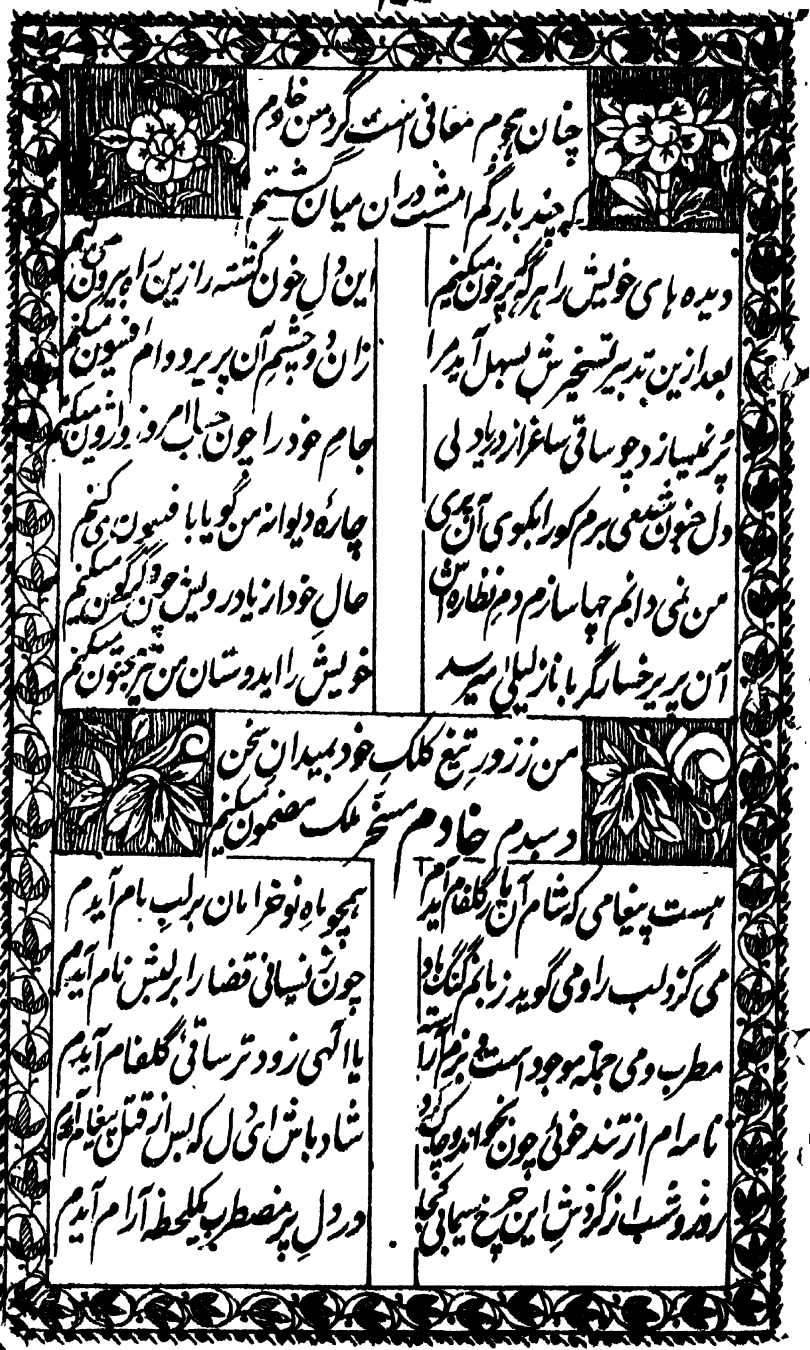 چنان هجوم معافی است گرد من خادم
که چند بار گم امشب در آن میان گشتم
دیده های خویش را هر گه پر خون میکنم
این دل خون گشته را زین راه بیرون می کنم
بعد ازین تدبیر تسخیرش بسهل آید مرا
زان دو چشم آن پری رو دام افسون میکنم
پر نمیسازد چو ساقی ساغر از دریا دلی
جام خود را چون حباب امروز واژون میکنم
دل جنون شیفی برم کورا بکوی آن پری
چارهٔ دیوانه من گویا با فسون می کنم
من نمی دانم چها سازم دم نظاره اش
حال خود از یاد رویش چون دگرگون میکنم
آن پری رخسار گر با ناز لیلی میرسد
خویش را ای دوستان من نیز مجنون میکنم
من ز زور تیغ کلک خود بمیدان سخن
دمبدم خادم مسخر ملک مضمون میکنم
هست پیغامی که شام آن یار گلفام آیدم
همچو ماه نو خرامان بر لب بام آیدم
می گزد لب را و می گوید زبانم گنگ باد
چون ز نسیانی قضا را بر لبش نام آیدم
مطرب و می جمله موجود است و بزم آراسته
یا الهی زود تر ساقی گلفام آیدم
نامه ام از تند خوئی چون نخواند و چاک کرد
شاد باش ای دل که بس از قتل پیغام آیدم
روز و شب از گردش این چرخ سیمابی کجا
در دل پر مضطرب یکلحظه آرام آیدم